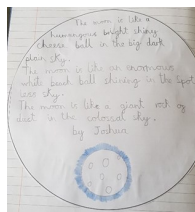 The moon is like a
humongous bright shiny
cheese ball in the big dark
plain sky.
The moon is like an enormous
white beach ball shining in the spot
less sky.
The moon is like a giant rock of
dust in the colossal sky.
by Joshua